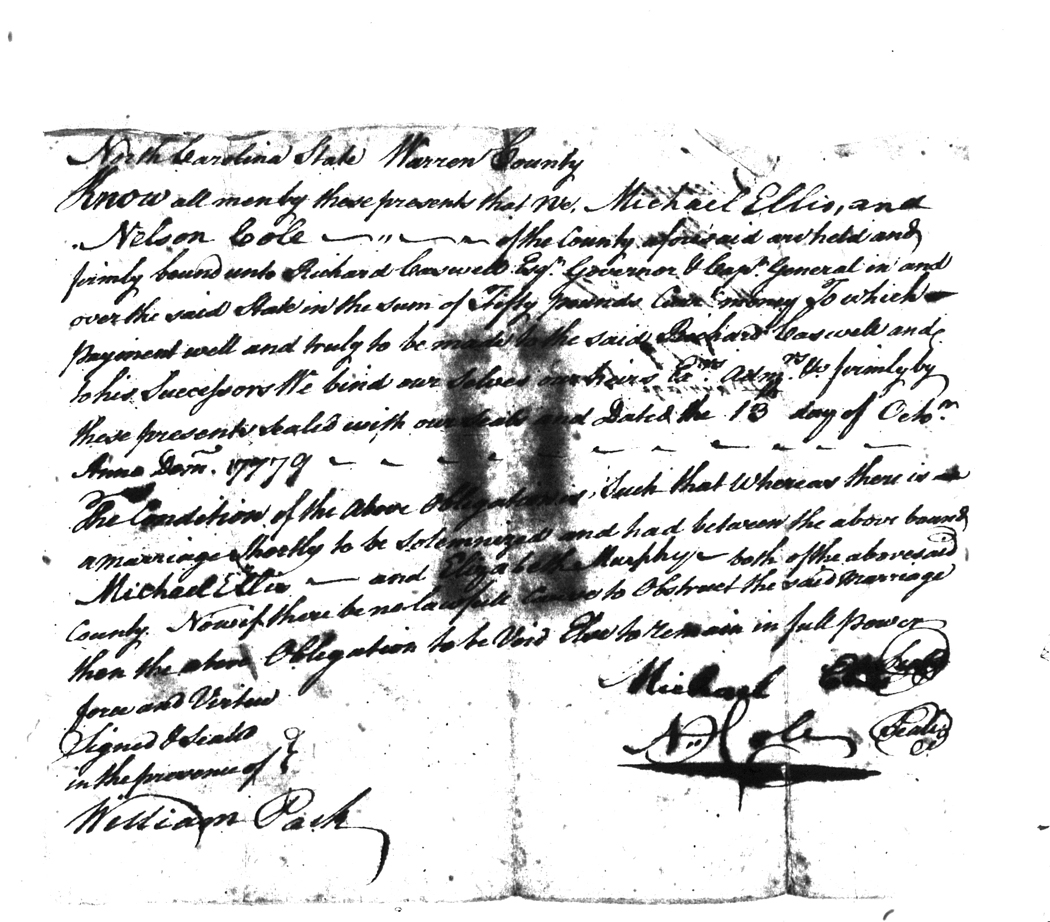 North Carolina State Warren County
Know all men by these presents that We, Michael Ellis, and
Nelson Cole — " — of the County aforesaid are held and
firmly bound unto Richard Caswell Esqr. Governor & Capn. General in and
over the said State in the sum of Fifty pounds Curr. money To which
payment well and truly to be made to the said Richard Caswell and
to his Successors We bind our selves our heirs Exrs. Admrs. &c firmly by
these presents sealed with our seals and Dated the 13 day of Octor.
Anno Dom. 1779
The Condition of the Above Obligation is Such that Whereas there is
a marriage Shortly to be Solemnized and had between the above bound
Michael Ellis — and Elizabeth Murphy — both of the abovesaid
County. Now if there be no lawfull Cause to Obstruct the said Marriage
then the above Obligation to be Void Else to remain in full power
force and Virtue
Michael Ellis Seald
Signed & Seald
N. Cole Seald
in the presence of
William Park